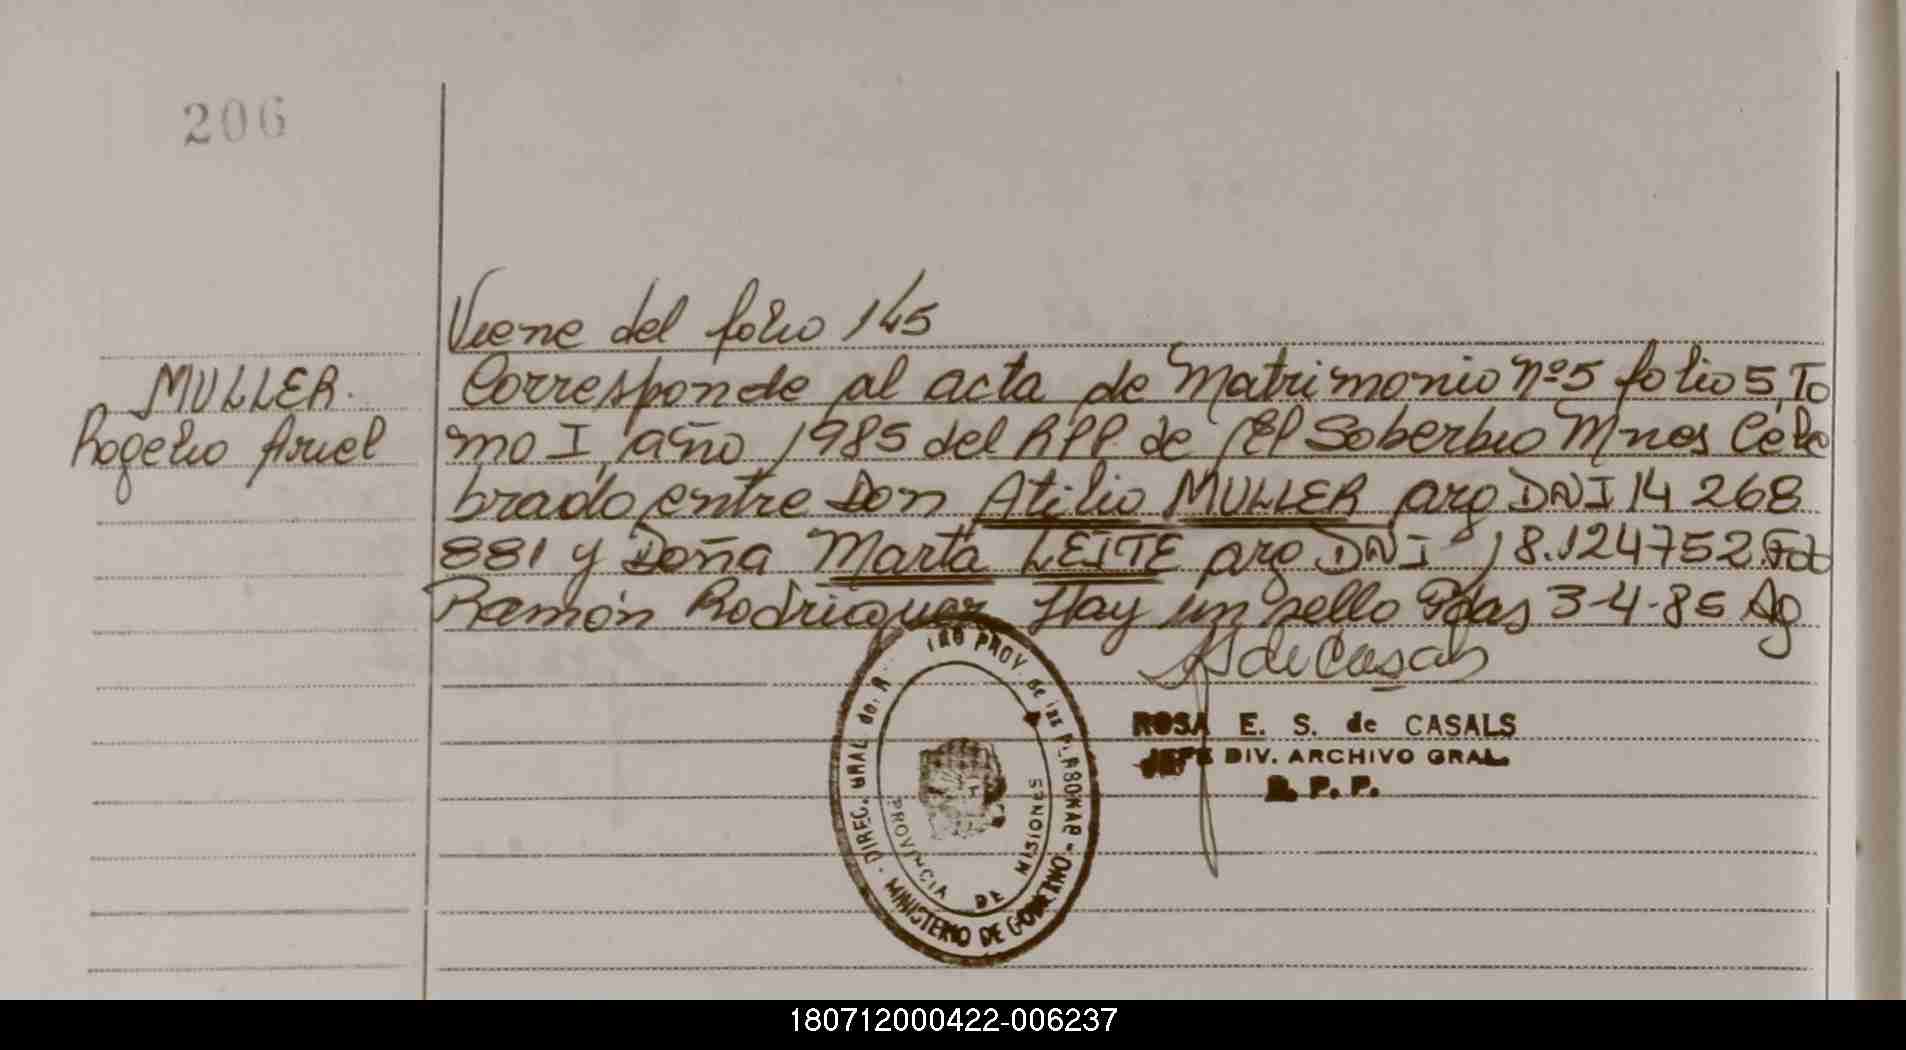 206
Viene del folio 145
MULLER.
Rogelio Ariel
Corresponde al acta de Matrimonio Nº5 folio 5, To
mo I, año 1985 del RPP de El Soberbio Mnes Cele
brado entre Don Atilio MULLER arg DNI 14 268
881 y Doña Marta LEITE arg DNI 18.124752. Fdo
Ramón Rodriguez Hay un sello Pdas 3-4-85 Ag
S de Casals
ROSA E. S. de CASALS
JEFE DIV. ARCHIVO GRAL.
R. P. P.
DIREC. GRAL de. R PROV. de las PERSONAS - MINISTERIO DE GOBIERNO
PROVINCIA DE MISIONES
180712000422-006237